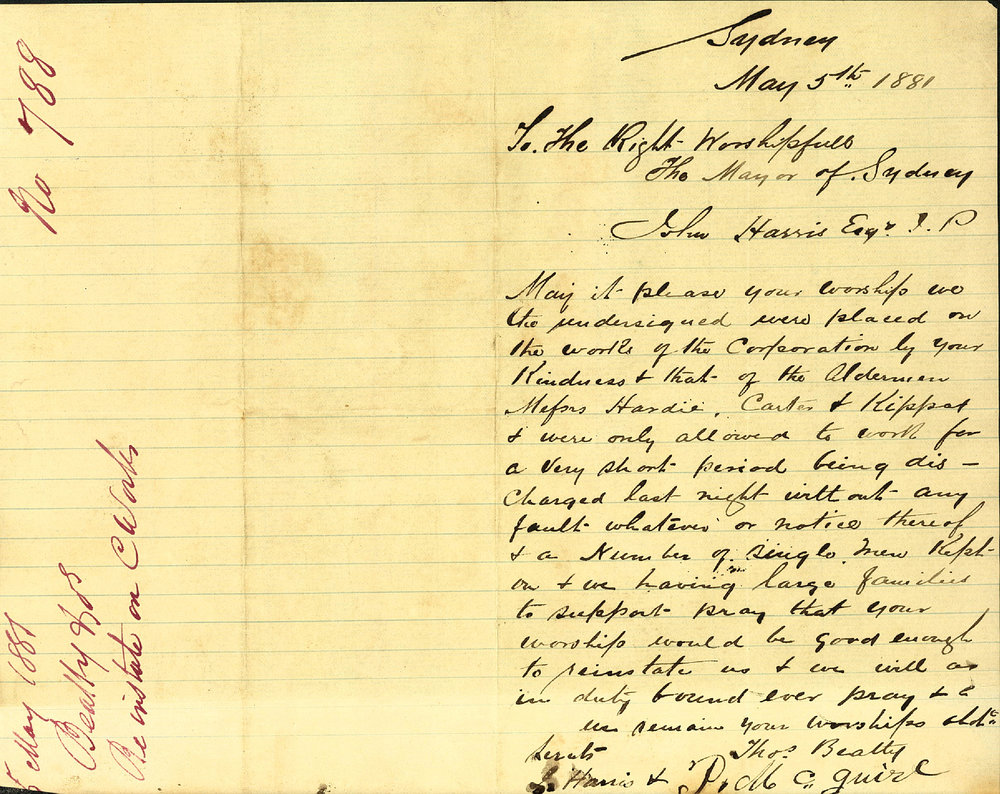 Sydney
May 5th 1881
To. The Right Worshipfull
The Mayor of Sydney
John Harris Esqr J.P
May it please your worship we
the undersigned were placed on
the works of the Corporation by your
Kindness & that of the Aldermen
Messrs Hardie, Carter & Kippax
& were only allowed to work for
a very short period being dis-
charged last night without any
fault whatever or notice thereof
& a Number of single men Kept
on & we having large families
to support pray that your
worship would be good enough
to reinstate us & we will as
in duty bound ever pray & c
we remain your worships obdt
servts Thos Beatty
Harris & P. McGuire
No 788
May 1881
Beatty & os
Reinstate on C Works